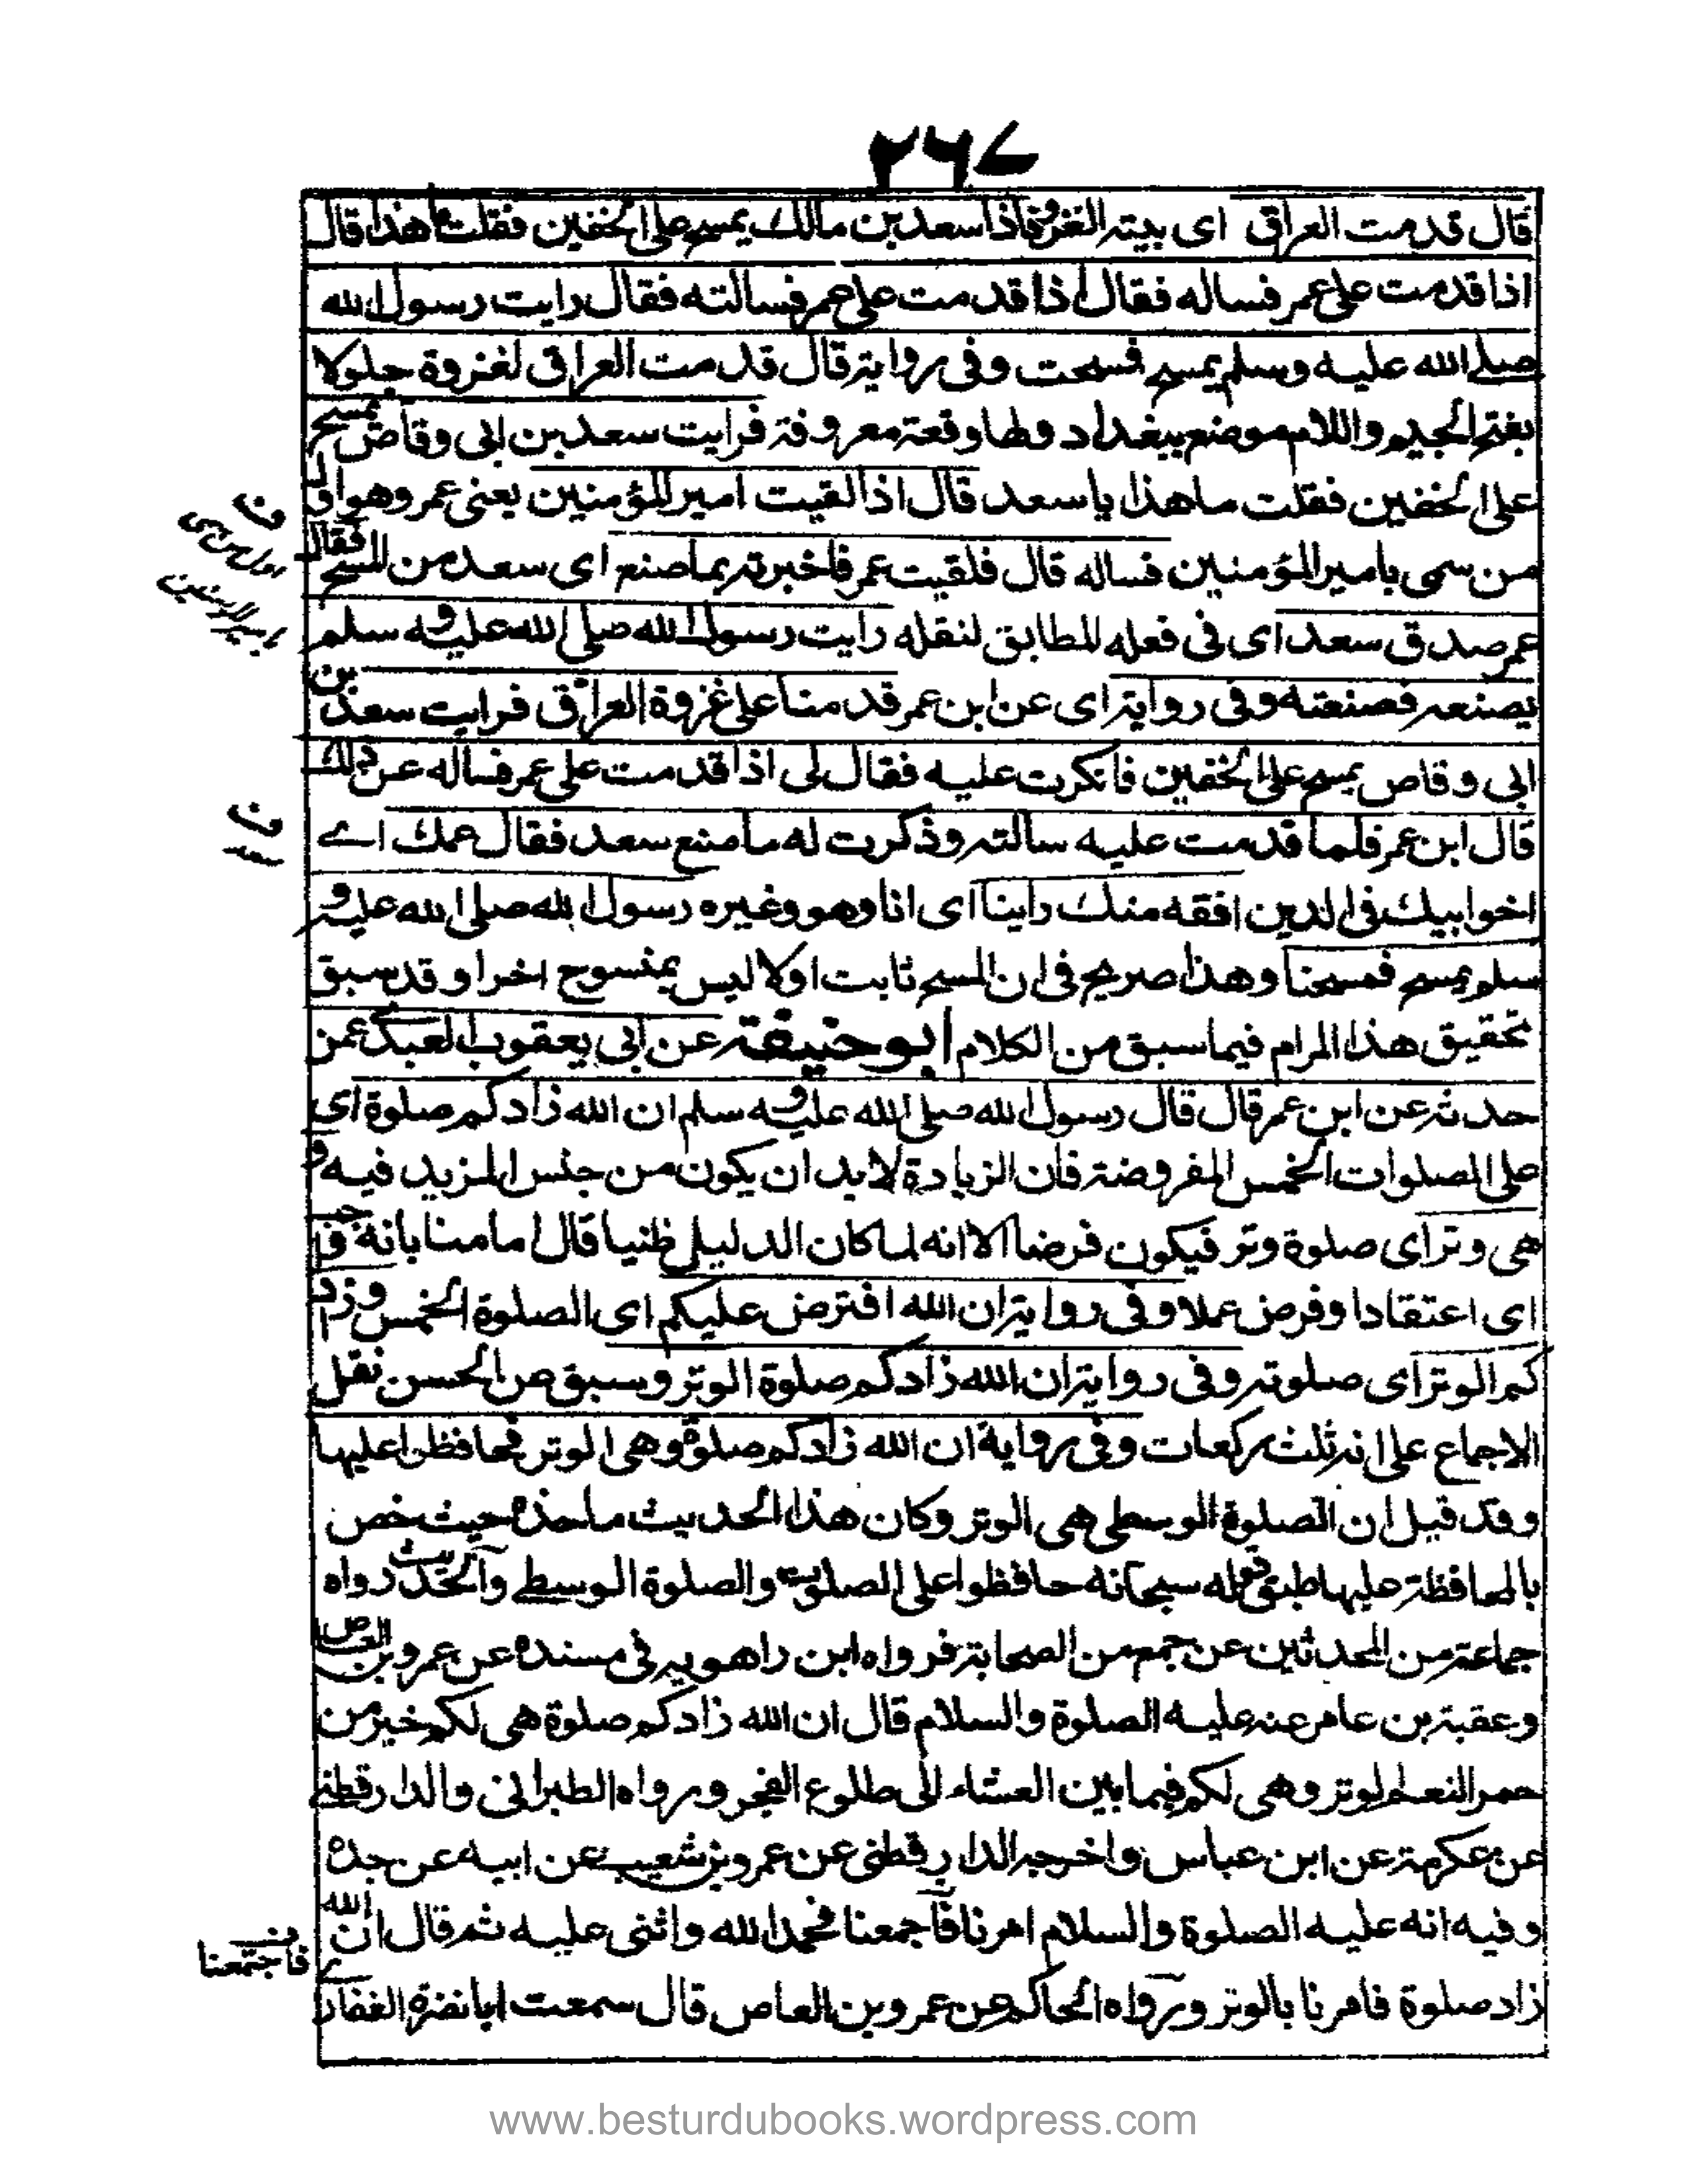 ٢٦٧
قال قدمت العراق اى بيته الغزوة فاذا سعد بن مالك يمسح على الخفين فقلت ما هذا قال
اذا قدمت على عمر فساله فقال اذا قدمت على عمر فسالته فقال رايت رسول الله
صلى الله عليه وسلم يمسح فمسحت وفى رواية قال قدمت العراق لغزوة جلولا
بفتح الجيم واللام موضع ببغداد ولها وقعة معروفة فرايت سعد بن ابى وقاص يمسح
على الخفين فقلت ما هذا يا سعد قال اذا لقيت امير المؤمنين يعنى عمر وهو اول
من سمى بامير المؤمنين فساله قال فلقيت عمر فاخبرته بما صنع اى سعد من المسح فقال
عمر صدق سعد اى فى فعله المطابق لنقله رايت رسول الله صلى الله عليه و سلم
يصنعه فصنعته وفى رواية اى عن ابن عمر قدمنا على غزوة العراق فرايت سعد بن
ابى وقاص يمسح على الخفين فانكرت عليه فقال لى اذا قدمت على عمر فساله عن ذلك
قال ابن عمر فلما قدمت عليه سالته وذكرت له ما صنع سعد فقال عمك اے
اخو ابيك فى الدين افقه منك راينا اى انا وهو وغيره رسول الله صلى الله عليه و
سلم يمسح فمسحنا وهذا صريح فى ان المسح ثابت اولا ليس بمنسوخ اخرا و قد سبق
تحقيق هذا المرام فيما سبق من الكلام ابو حنيفة عن ابى يعقوب العبدے عمن
حدثه عن ابن عمر قال قال رسول الله صلى الله عليه و سلم ان الله زادكم صلوة اى
على الصلوات الخمس المفروضة فان الزيادة لا بد ان يكون من جنس المزيد فيه و
هى وتر اى صلوة وتر فيكون فرضا الا انه لما كان الدليل ظنيا قال امامنا بانه واجب
اى اعتقادا وفرض عملا وفى رواية ان الله افترض عليكم اى الصلوة الخمس وزاد
كم الوتر اى صلوته وفى رواية ان الله زادكم صلوة الوتر وسبق من الحسن نقل
الاجماع على انه ثلث ركعات وفى رواية ان الله زادكم صلوة وهى الوتر فحافظوا عليها
وقد قيل ان الصلوة الوسطى هى الوتر وكان هذا الحديث ماخذه حيث خص
بالمحافظة عليها طبق قوله سبحانه حافظوا على الصلوت والصلوة الوسطے والحديث رواه
جماعة من المحدثين عن جمع من الصحابة فرواه ابن راهويه فى مسنده عن عمرو بن العاص
وعقبة بن عامر عنه عليه الصلوة والسلام قال ان الله زادكم صلوة هى لكم خير من
حمر النعم الوتر وهى لكم فيما بين العشاء الى طلوع الفجر ورواه الطبرانى والدارقطنے
عن عكرمة عن ابن عباس واخرجه الدارقطنى عن عمرو بن شعيب عن ابيه عن جده
وفيه انه عليه الصلوة والسلام امرنا فاجمعنا فحمد الله واثنى عليه ثم قال ان الله
زاد صلوة فامرنا بالوتر ورواه الحاكم عن عمرو بن العاص قال سمعت ابا نضرة الغفار
ف
اول من سمى
بامير المومنين
ف
فاجتمعنا
www.besturdubooks.wordpress.com